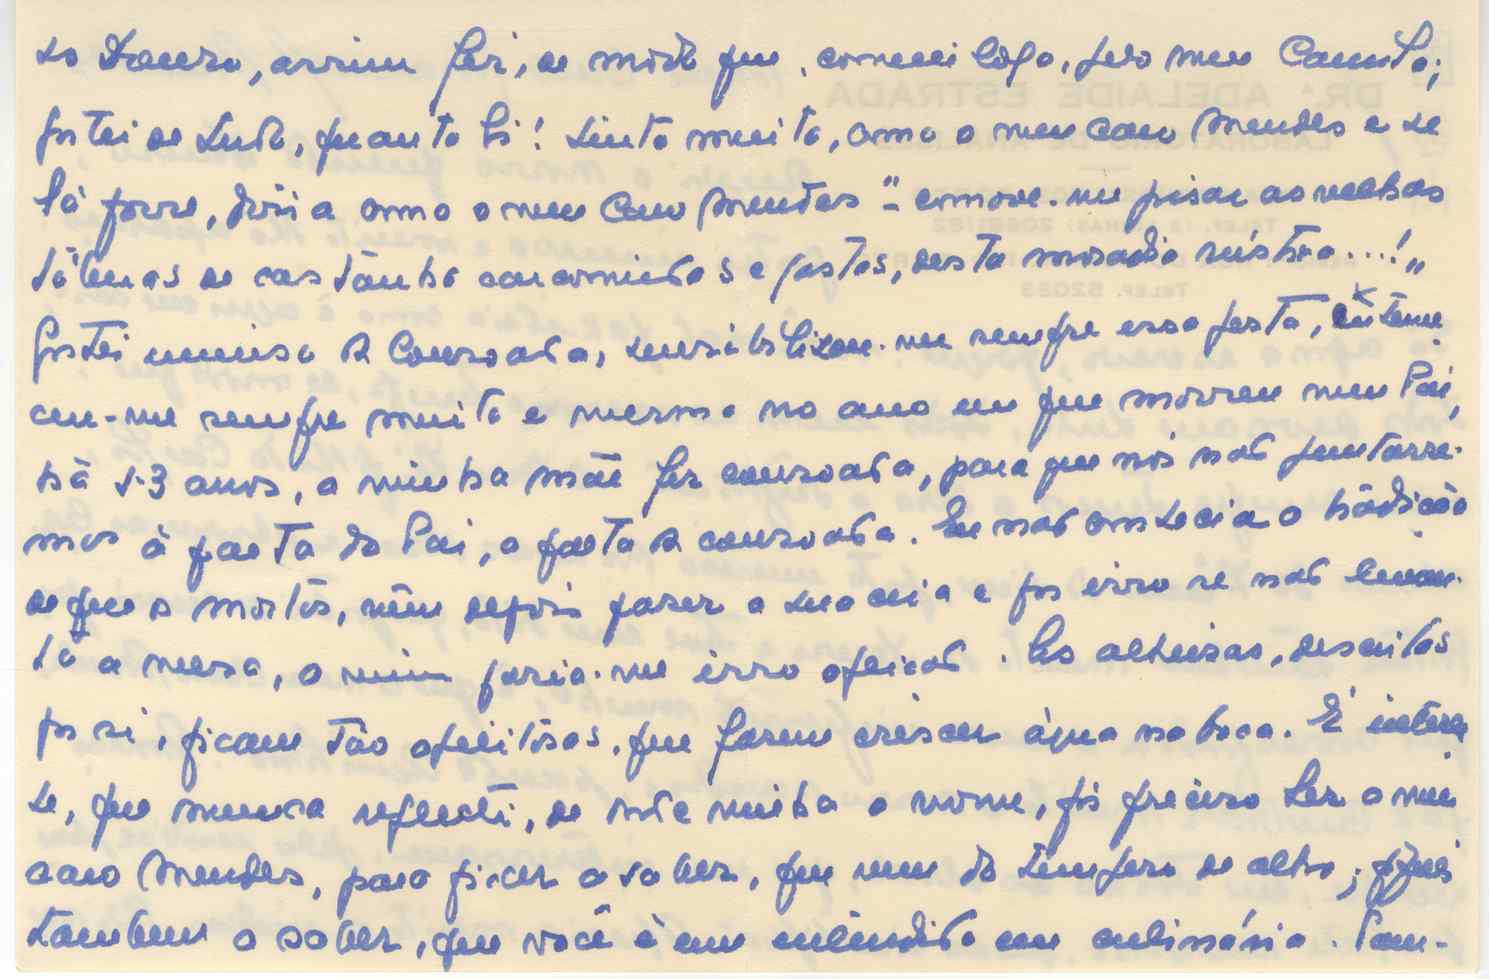 do Douro, assim fiz, de modo que, comecei logo, pelo meu Camilo;
gostei de tudo, quanto li! Sinto muito, como o meu caro Mendes e se
lá fosse, diria como o meu Caro Mendes "comove-me pisar as velhas
tábuas de castanho carcomidas e gastas, desta moradia rústica...!"
Gostei imenso da Consoada, sensibilizou-me sempre essa festa, enterne-
ceu-me sempre muito e mesmo no ano em que morreu meu Pai,
há 53 anos, a minha mãe fez consoada, para que nós não juntasse-
mos à falta do Pai, a falta da consoada. Eu não conhecia a tradição
de que os mortos, vêm depois fazer a sua ceia e por isso se não levan-
ta a mesa, a mim faria-me isso aflição. As alheiras, descritas
por si, ficam tão apetitosas, que fazem crescer água na boca. É interessan
te, que nunca reflecti, de onde vinha o nome, foi preciso ler o meu
caro Mendes, para ficar a saber, que vem do tempero de alho; fiquei
também a saber, que você é um entendido em culinária. Tam-
DR.ª ADELAIDE ESTRADA
LABORATÓRIO DE ANÁLISES